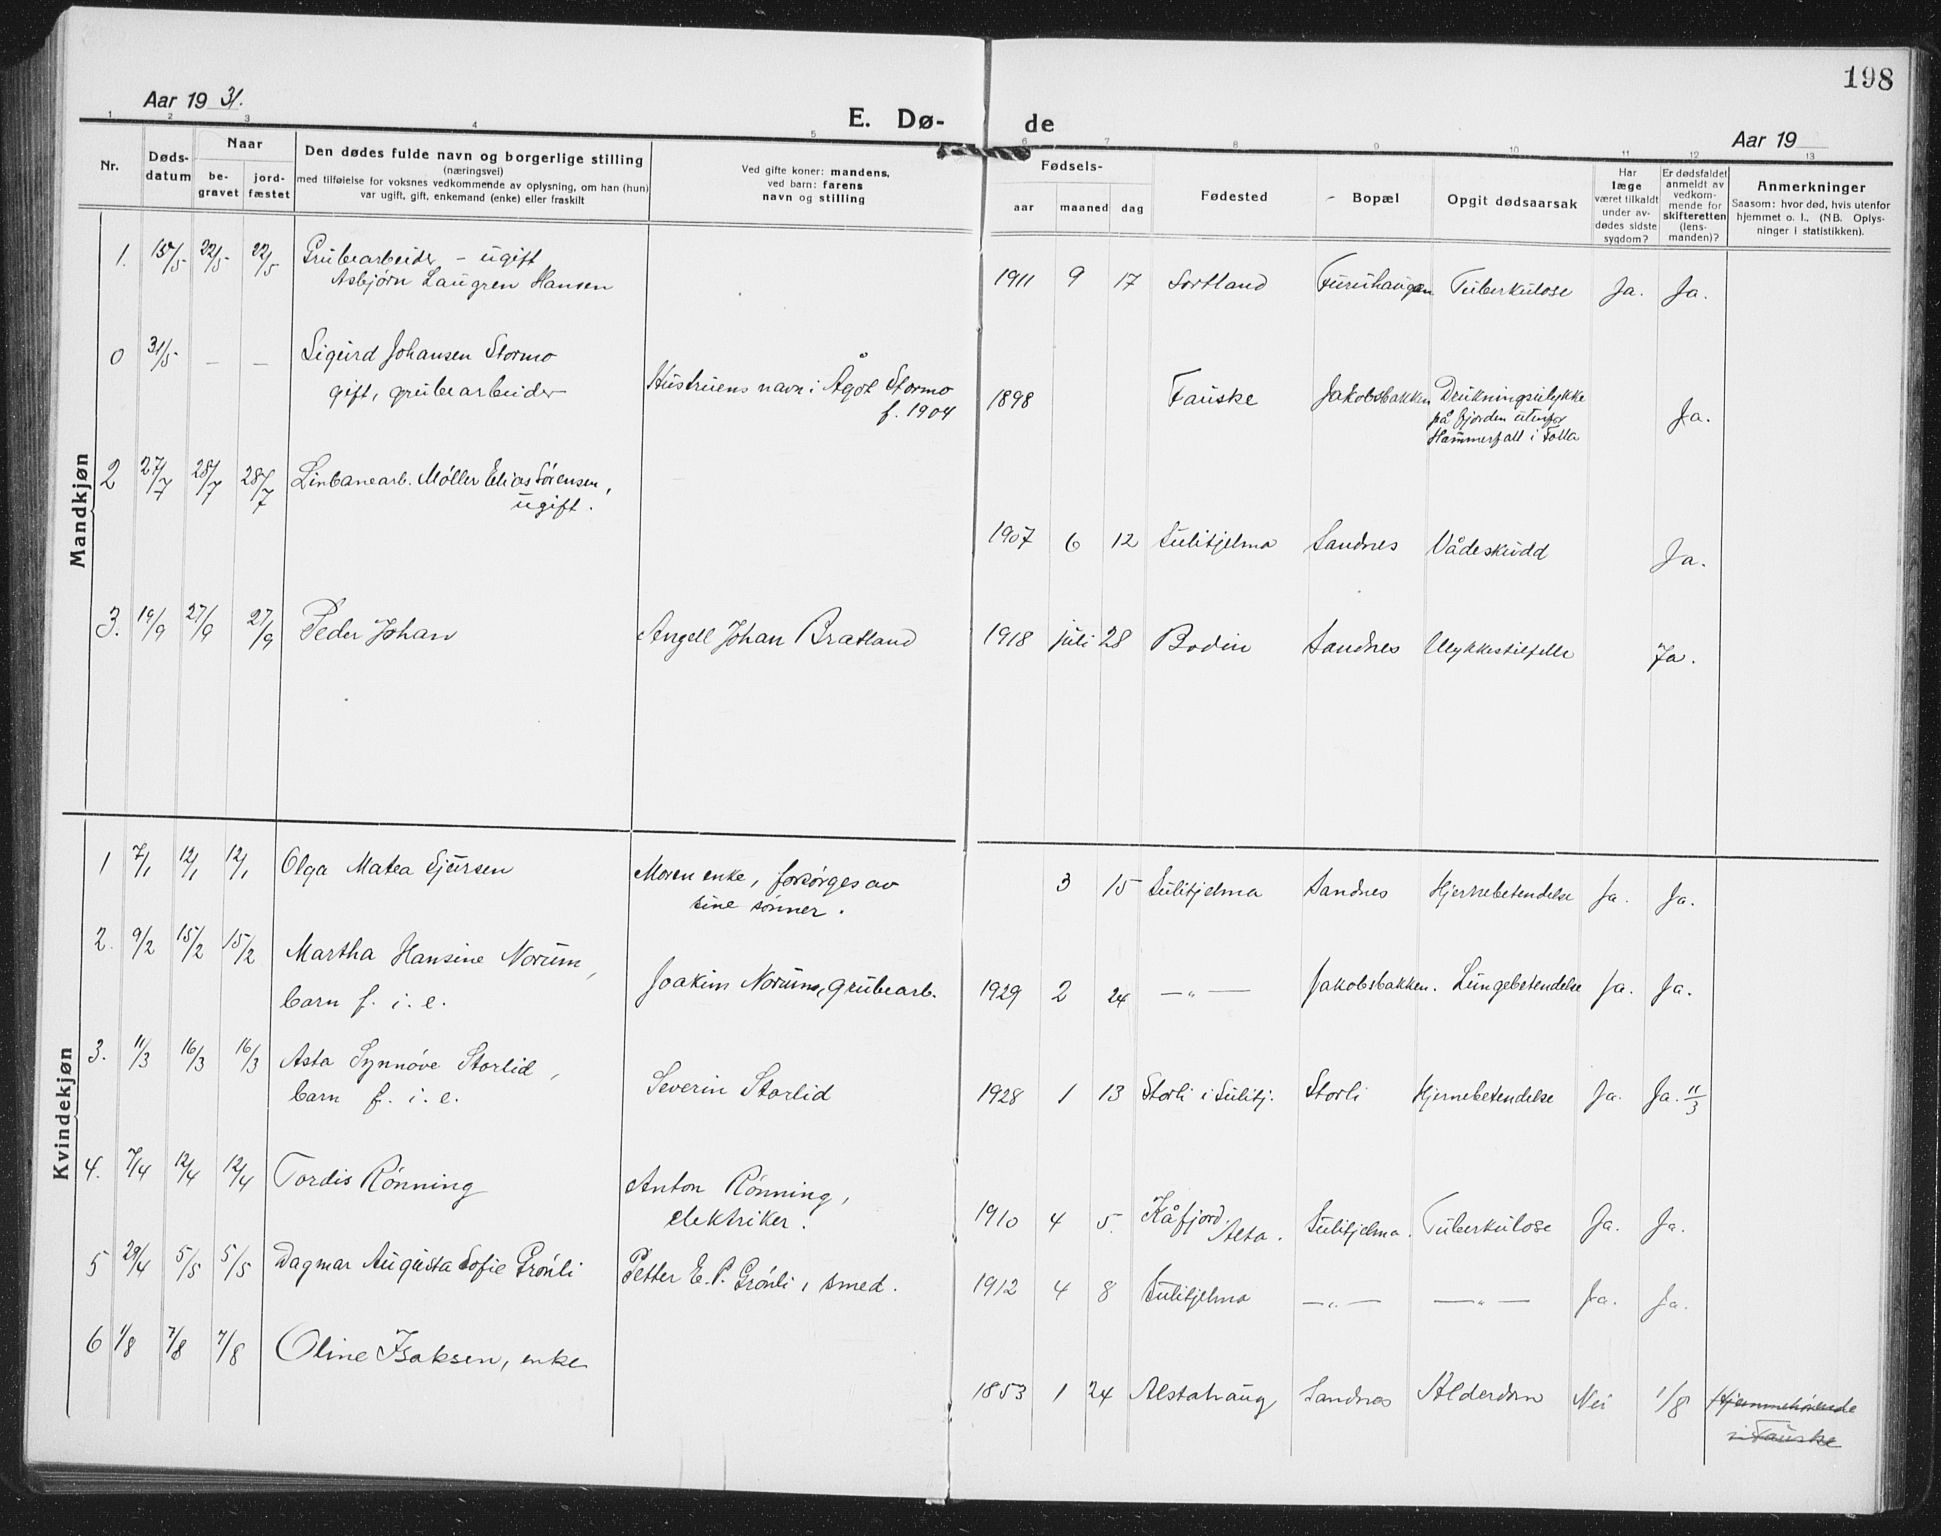 198
Aar 19 31.
E. Dø- de
Aar 19
1 2 3 4 5 6 7 8 9 10 11 12 13
Nr.
Døds-
datum
Naar
be-
gravet
jord-
fæstet
Den dødes fulde navn og borgerlige stilling
(næringsvei)
med tilføielse for voksnes vedkommende av oplysning, om han (hun)
var ugift, gift, enkemand (enke) eller fraskilt
Ved gifte koner: mandens,
ved barn: farens
navn og stilling
Fødsels-
aar maaned dag
Fødested
Bopæl
Opgit dødsaarsak
Har
læge
været tilkaldt
under av-
dødes sidste
sygdom?
Er dødsfaldet
anmeldt av
vedkom-
mende for
skifteretten
(lens-
manden)?
Anmerkninger
Saasom: hvor død, hvis utenfor
hjemmet o. l., (NB. Oplys-
ninger i statistikken).
Mandkjøn
1. 15/5 22/5 22/5 Grubearbeider – ugift
Asbjørn Laugren Hansen
1911 9 17 Sortland Furuhaugen Tuberkulose Ja. Ja.
0 31/5 – – Sigurd Johansen Stormo
gift, grubearbeider
Hustruens navn: Ågot Stormo
f. 1904
1898 Fauske Jakobsbakken Drukningsulykke
på fjorden utenfor
Hammerfall i Folla
Ja.
2 27/7 28/7 28/7 Linbanearb. Møller Elias Sørensen,
ugift.
1907 6 12 Sulitjelma Sandnes Vådeskudd Ja.
3. 19/9 27/9 27/9 Peder Johan Angell Johan Bratland
1918 juli 28 Bodin Sandnes Ulykkestilfelle Ja.
Kvindekjøn
1 7/1 12/1 12/1 Olga Matea Sjursen
Moren enke, forsørges av
sine sønner.
3 15 Sulitjelma Sandnes Hjernebetendelse Ja. Ja.
2. 9/2 15/2 15/2 Martha Hansine Norum,
barn f. i. e.
Joakim Norum, grubearb.
1929 2 24 —„— Jakobsbakken. Lungebetendelse Ja. Ja.
3. 11/3 16/3 16/3 Asta Synnøve Storlid,
barn f. i. e.
Severin Storlid
1928 1 13 Storli i Sulitj. Storli Hjernebetendelse Ja. Ja. 11/3
4. 7/4 12/4 12/4 Tordis Rønning
Anton Rønning,
elektriker.
1910 4 5. Kåfjord.
Alta. Sulitjelma. Tuberkulose Ja. Ja.
5 29/4 5/5 5/5 Dagmar Augusta Sofie Grønli Petter E. P. Grønli, smed.
1912 4 8 Sulitjelma —„— —„— Ja. Ja.
6 1/8 7/8 7/8 Oline Isaksen, enke
1853 1 24 Alstahaug Sandnes Alderdom Nei 1/8 Hjemmehørende
i Fauske